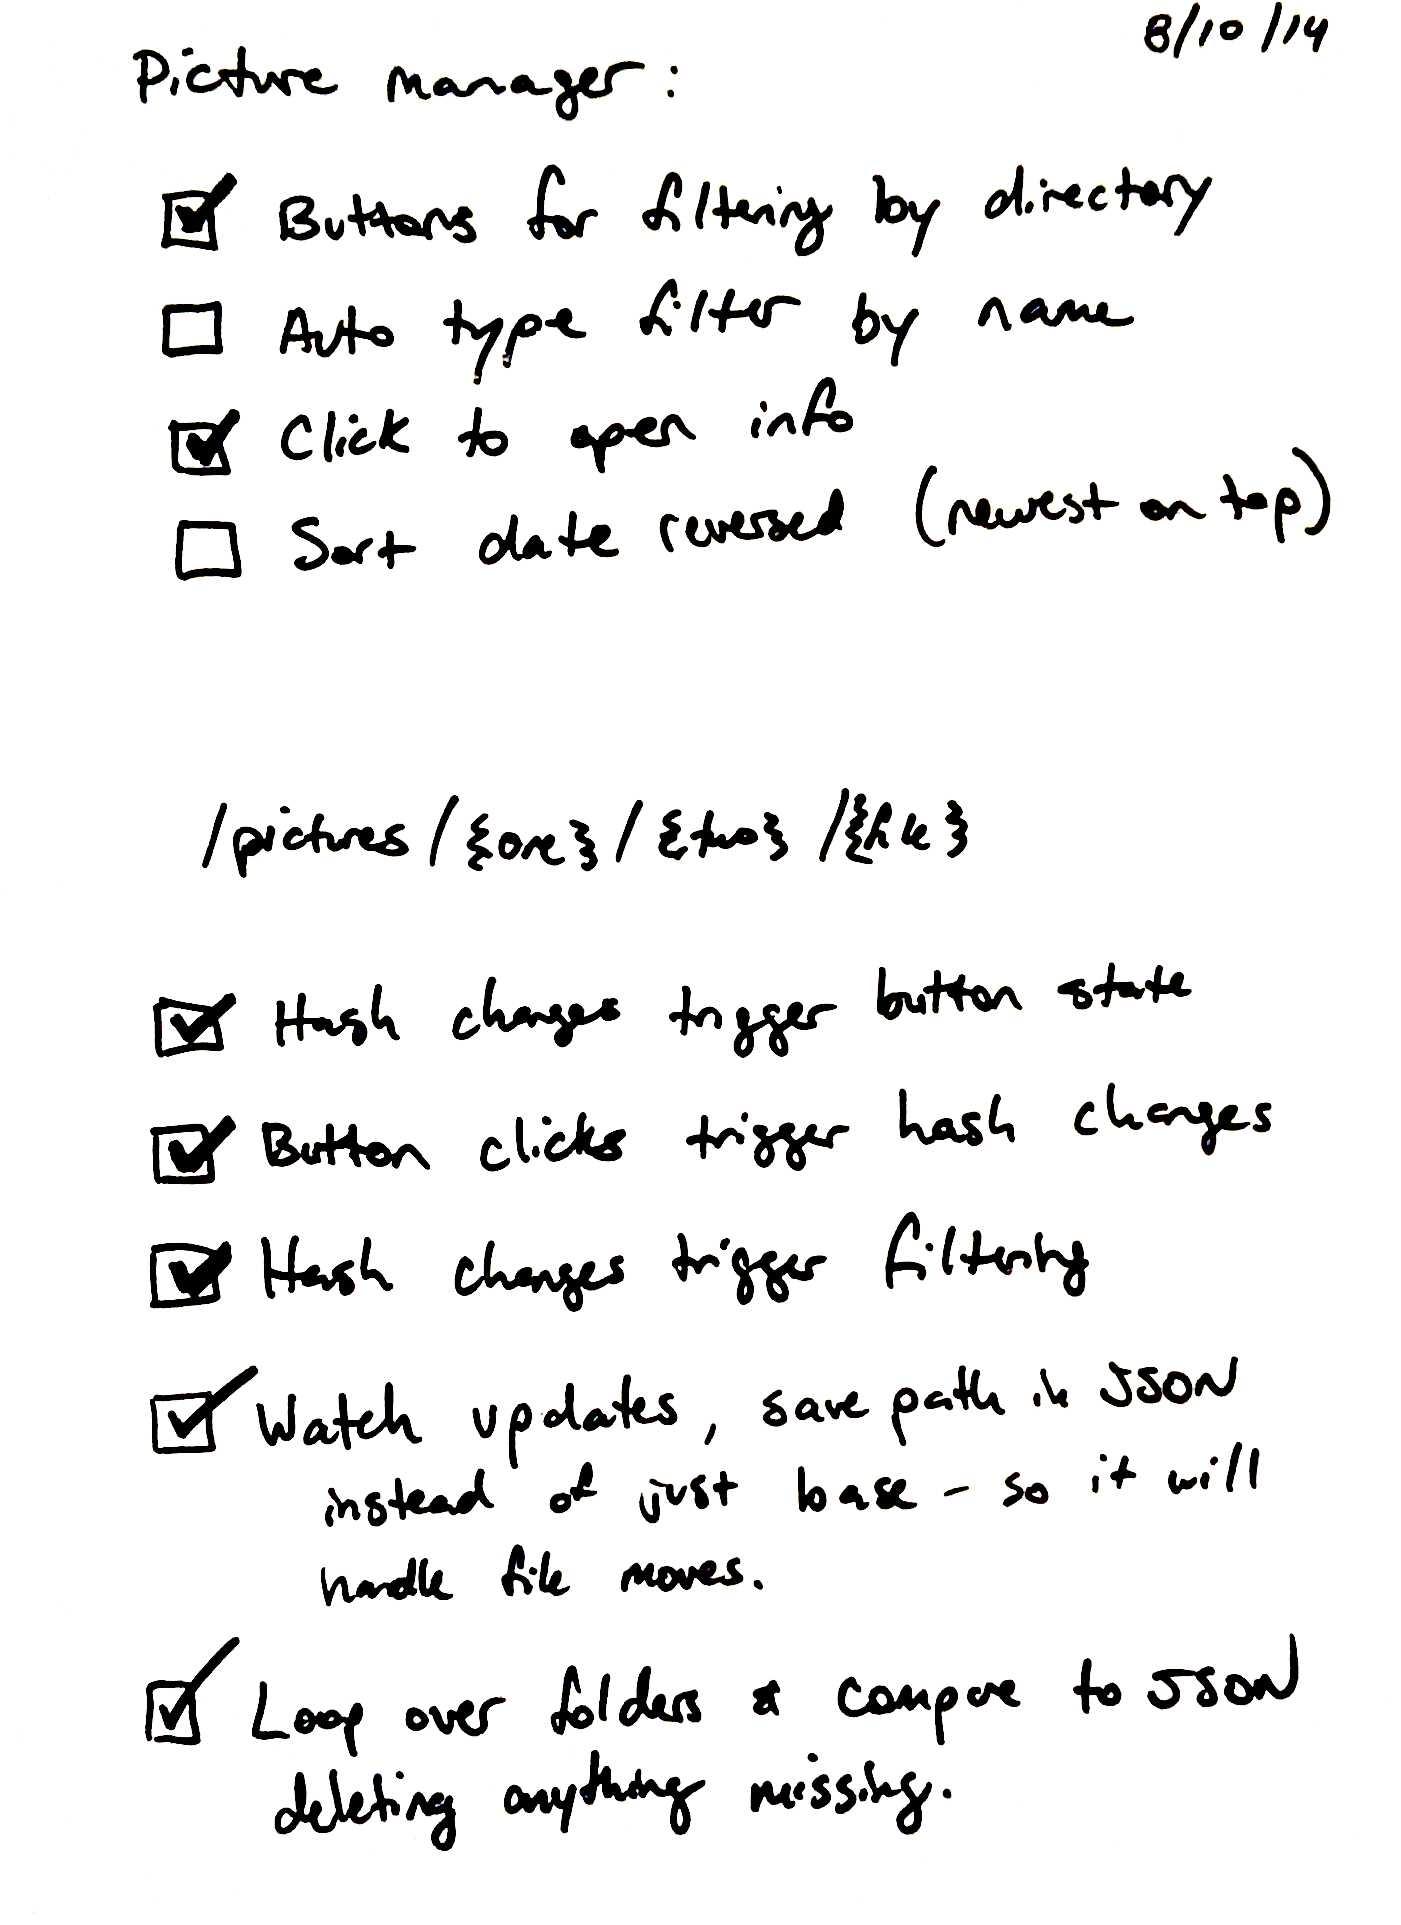 8/10/14
Picture manager:
Buttons for filtering by directory
Auto type filter by name
Click to open info
Sort date reversed (newest on top)
/pictures/{one}/{two}/{file}
Hash changes trigger button state
Button clicks trigger hash changes
Hash changes trigger filtering
Watch updates, save path in JSON
instead of just base - so it will
handle file moves.
Loop over folders & compare to JSON
deleting anything missing.